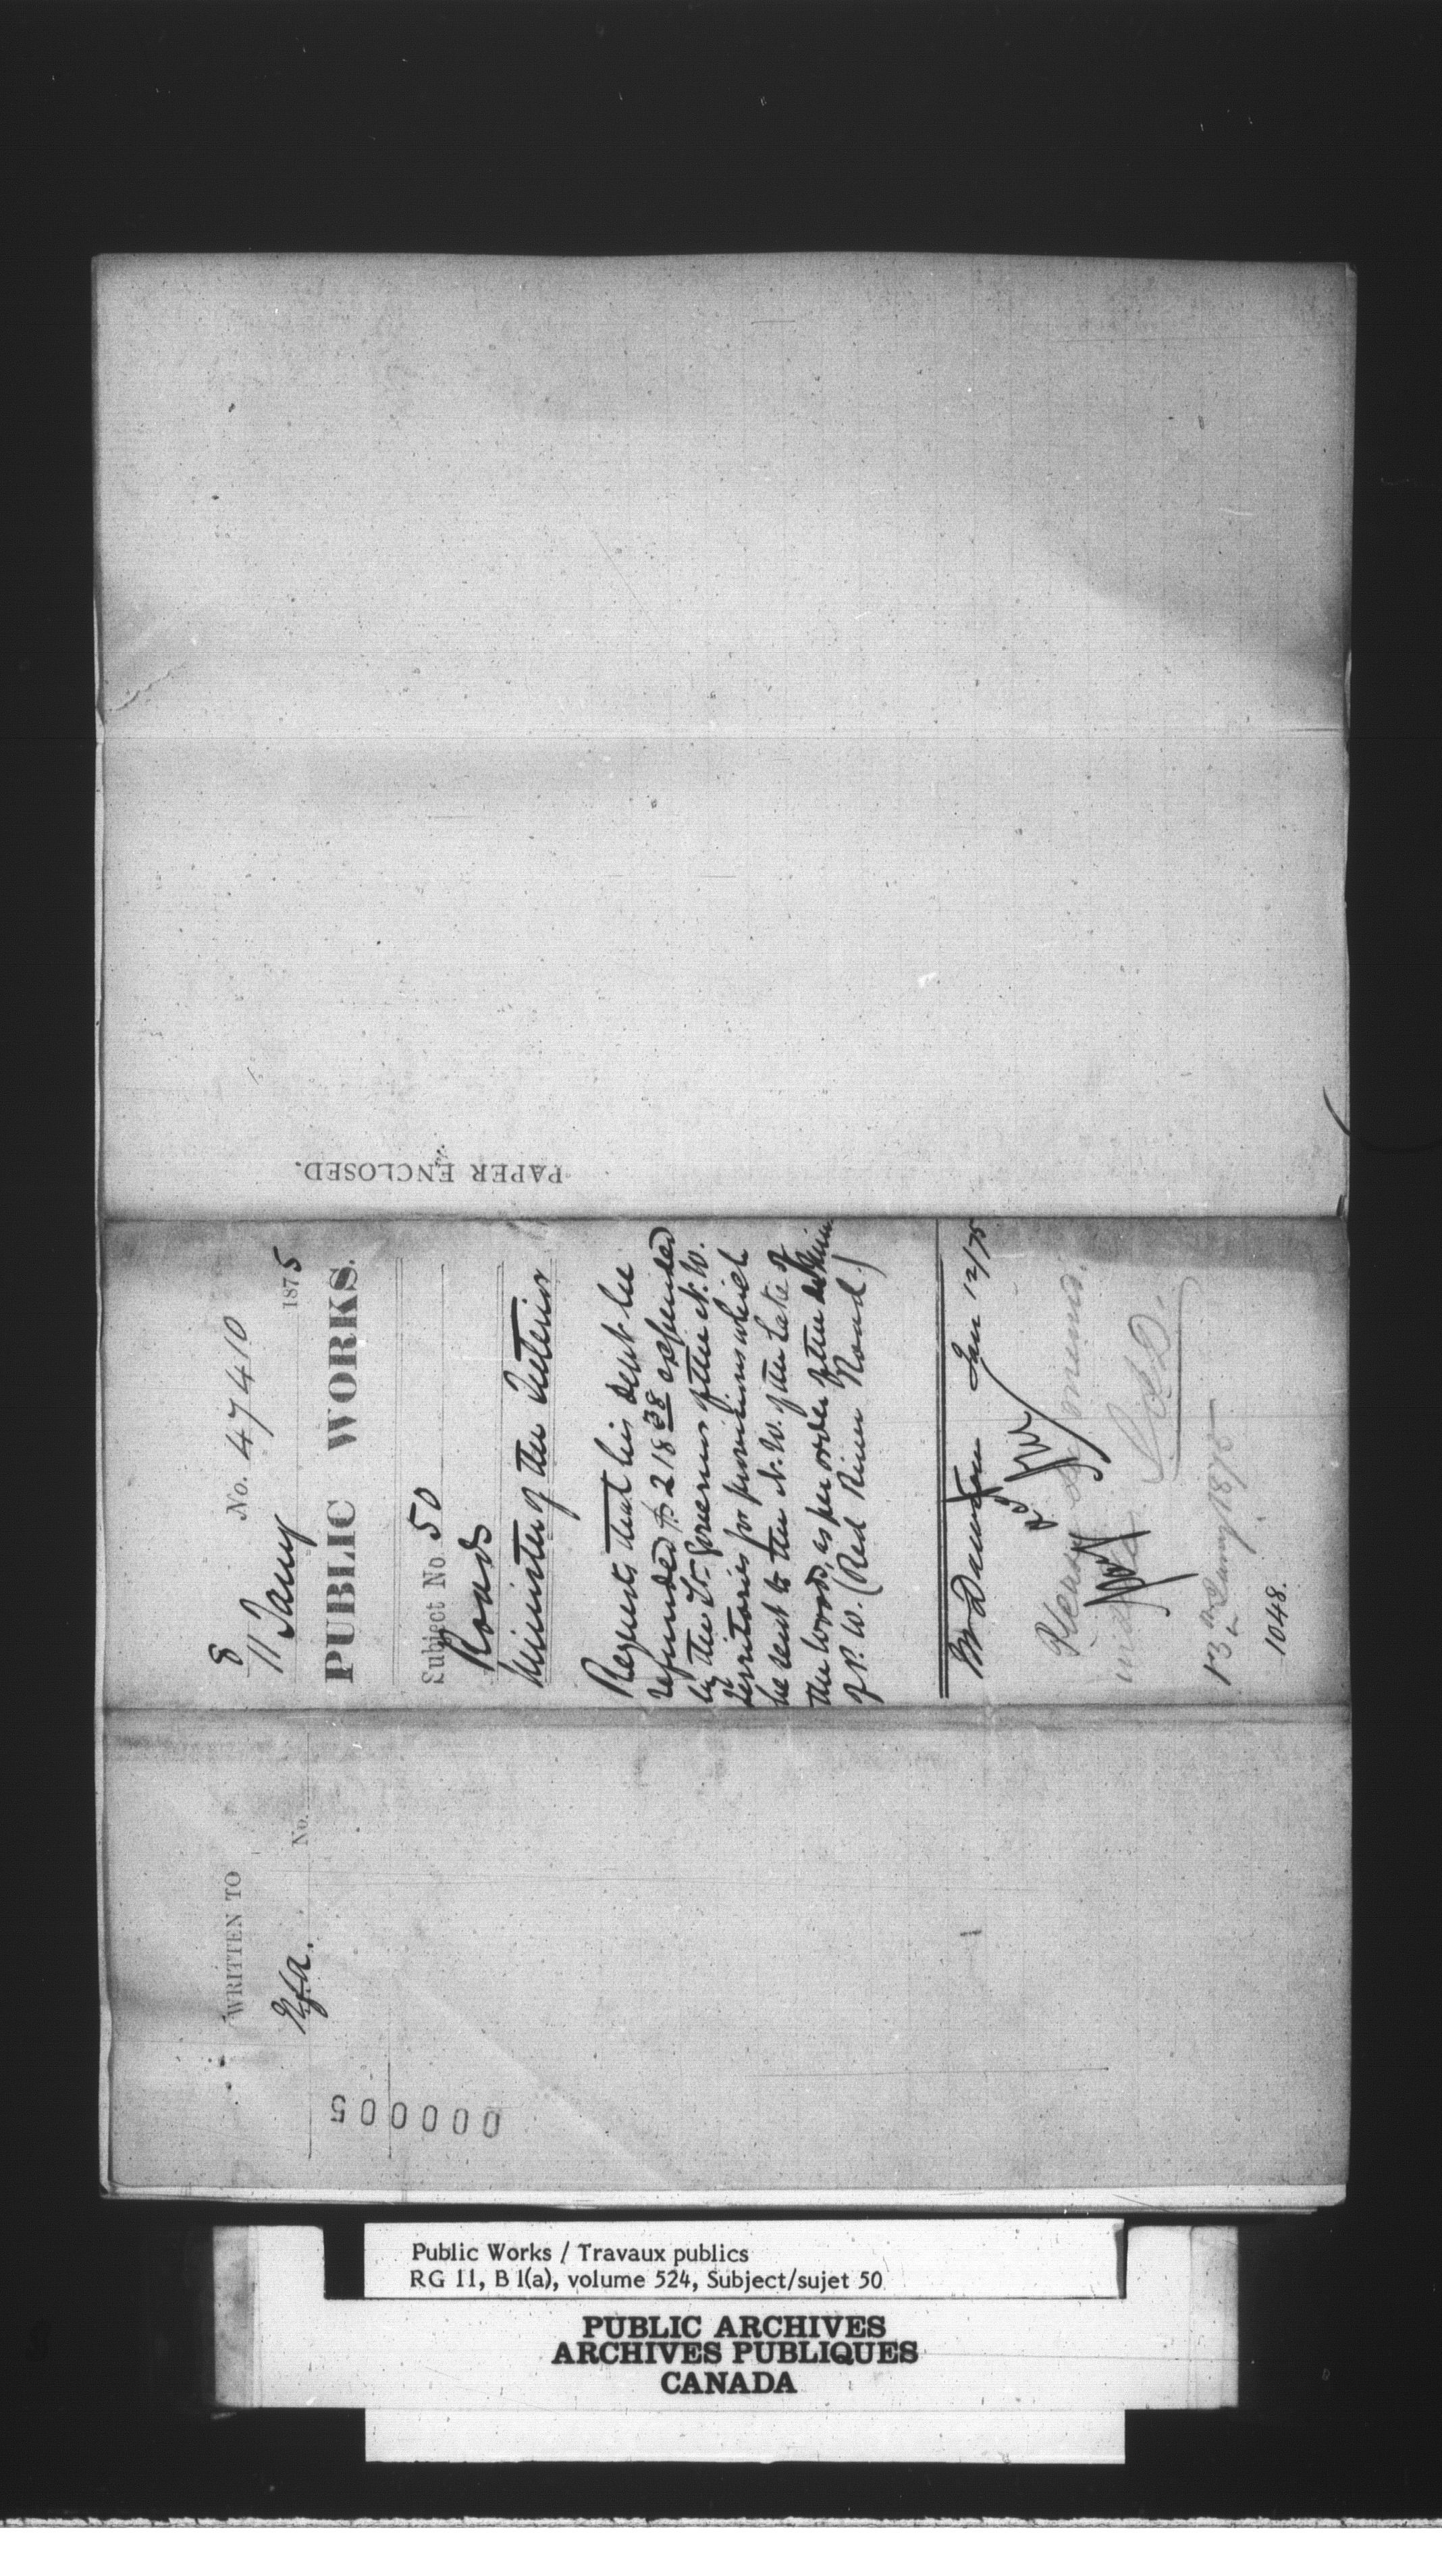 PAPER ENCLOSED.
No. 47410
8
11 Jany 1875
PUBLIC WORKS.
Subject No. 50
Roads
Minister of the Interior
Requests that his Dept be
refunded $218 38 expended
by the Lt. Governor of the N.W.
Territories for provisions which
he sent to the N.W. of the Lake of
the Woods, as per order of the
of P.W. (Red River Road.)
Jan 12/75
Please
13th Jany 1875
1048.
WRITTEN TO
No.
000005
Public Works / Travaux publics
RG 11, B 1(a), volume 524, Subject/sujet 50
PUBLIC ARCHIVES
ARCHIVES PUBLIQUES
CANADA